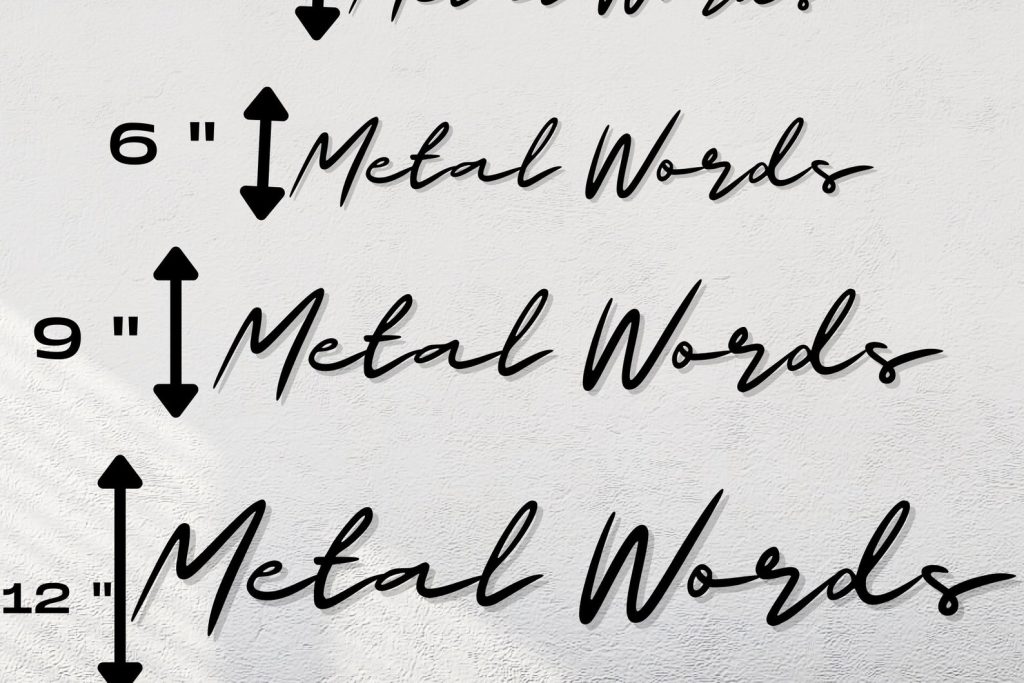 Metal Words
6 " Metal Words
9 " Metal Words
12 " Metal Words